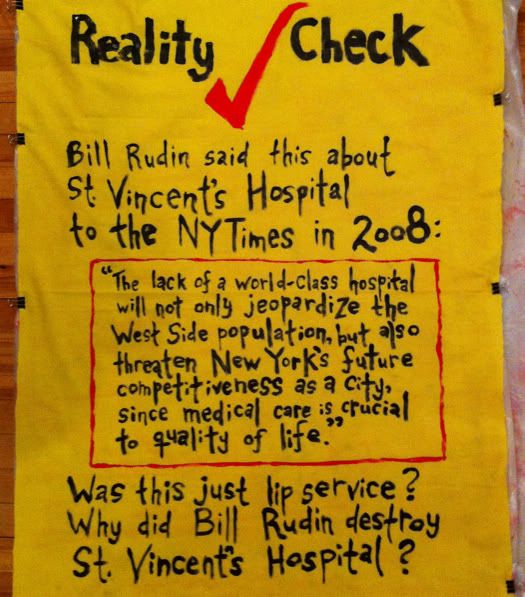 Reality Check
Bill Rudin said this about
St. Vincent's Hospital
to the NYTimes in 2008:
"The lack of a world-class hospital
will not only jeopardize the
West Side population, but also
threaten New York's future
competitiveness as a city,
since medical care is crucial
to quality of life."
Was this just lip service?
Why did Bill Rudin destroy
St. Vincent's Hospital?